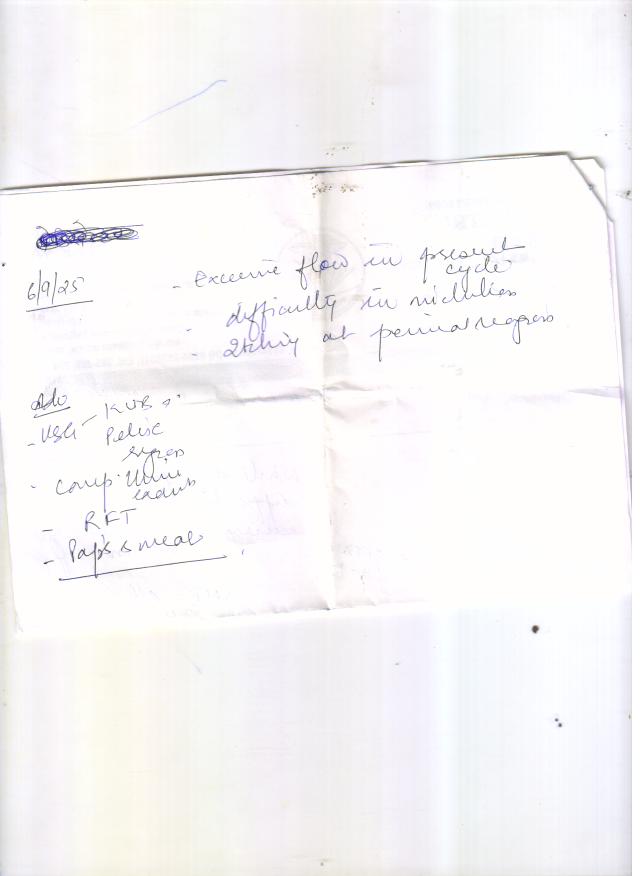 6/9/25
- Excessive flow in present
cycle
- difficulty in micturition
- Itching at perineal region
Adv
- USG - KUB &
Pelvic
region
- Comp. Urine
exam
- RFT
- Pap's smear